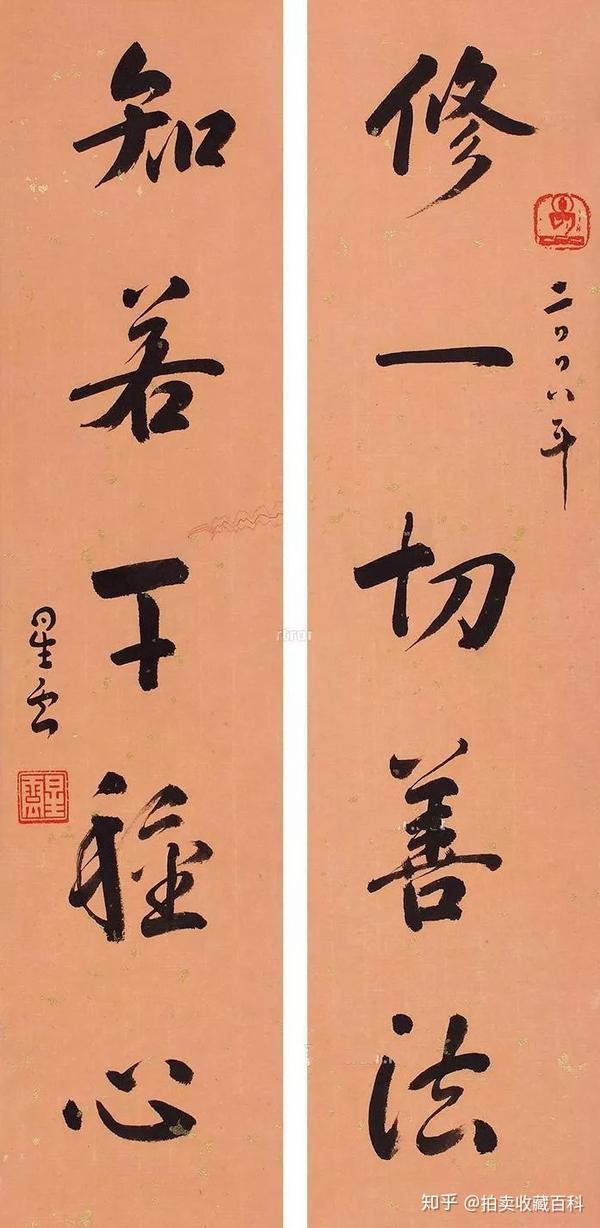 二〇〇八年
修一切善法
知若干種心
星雲
星雲
知乎 @拍卖收藏百科